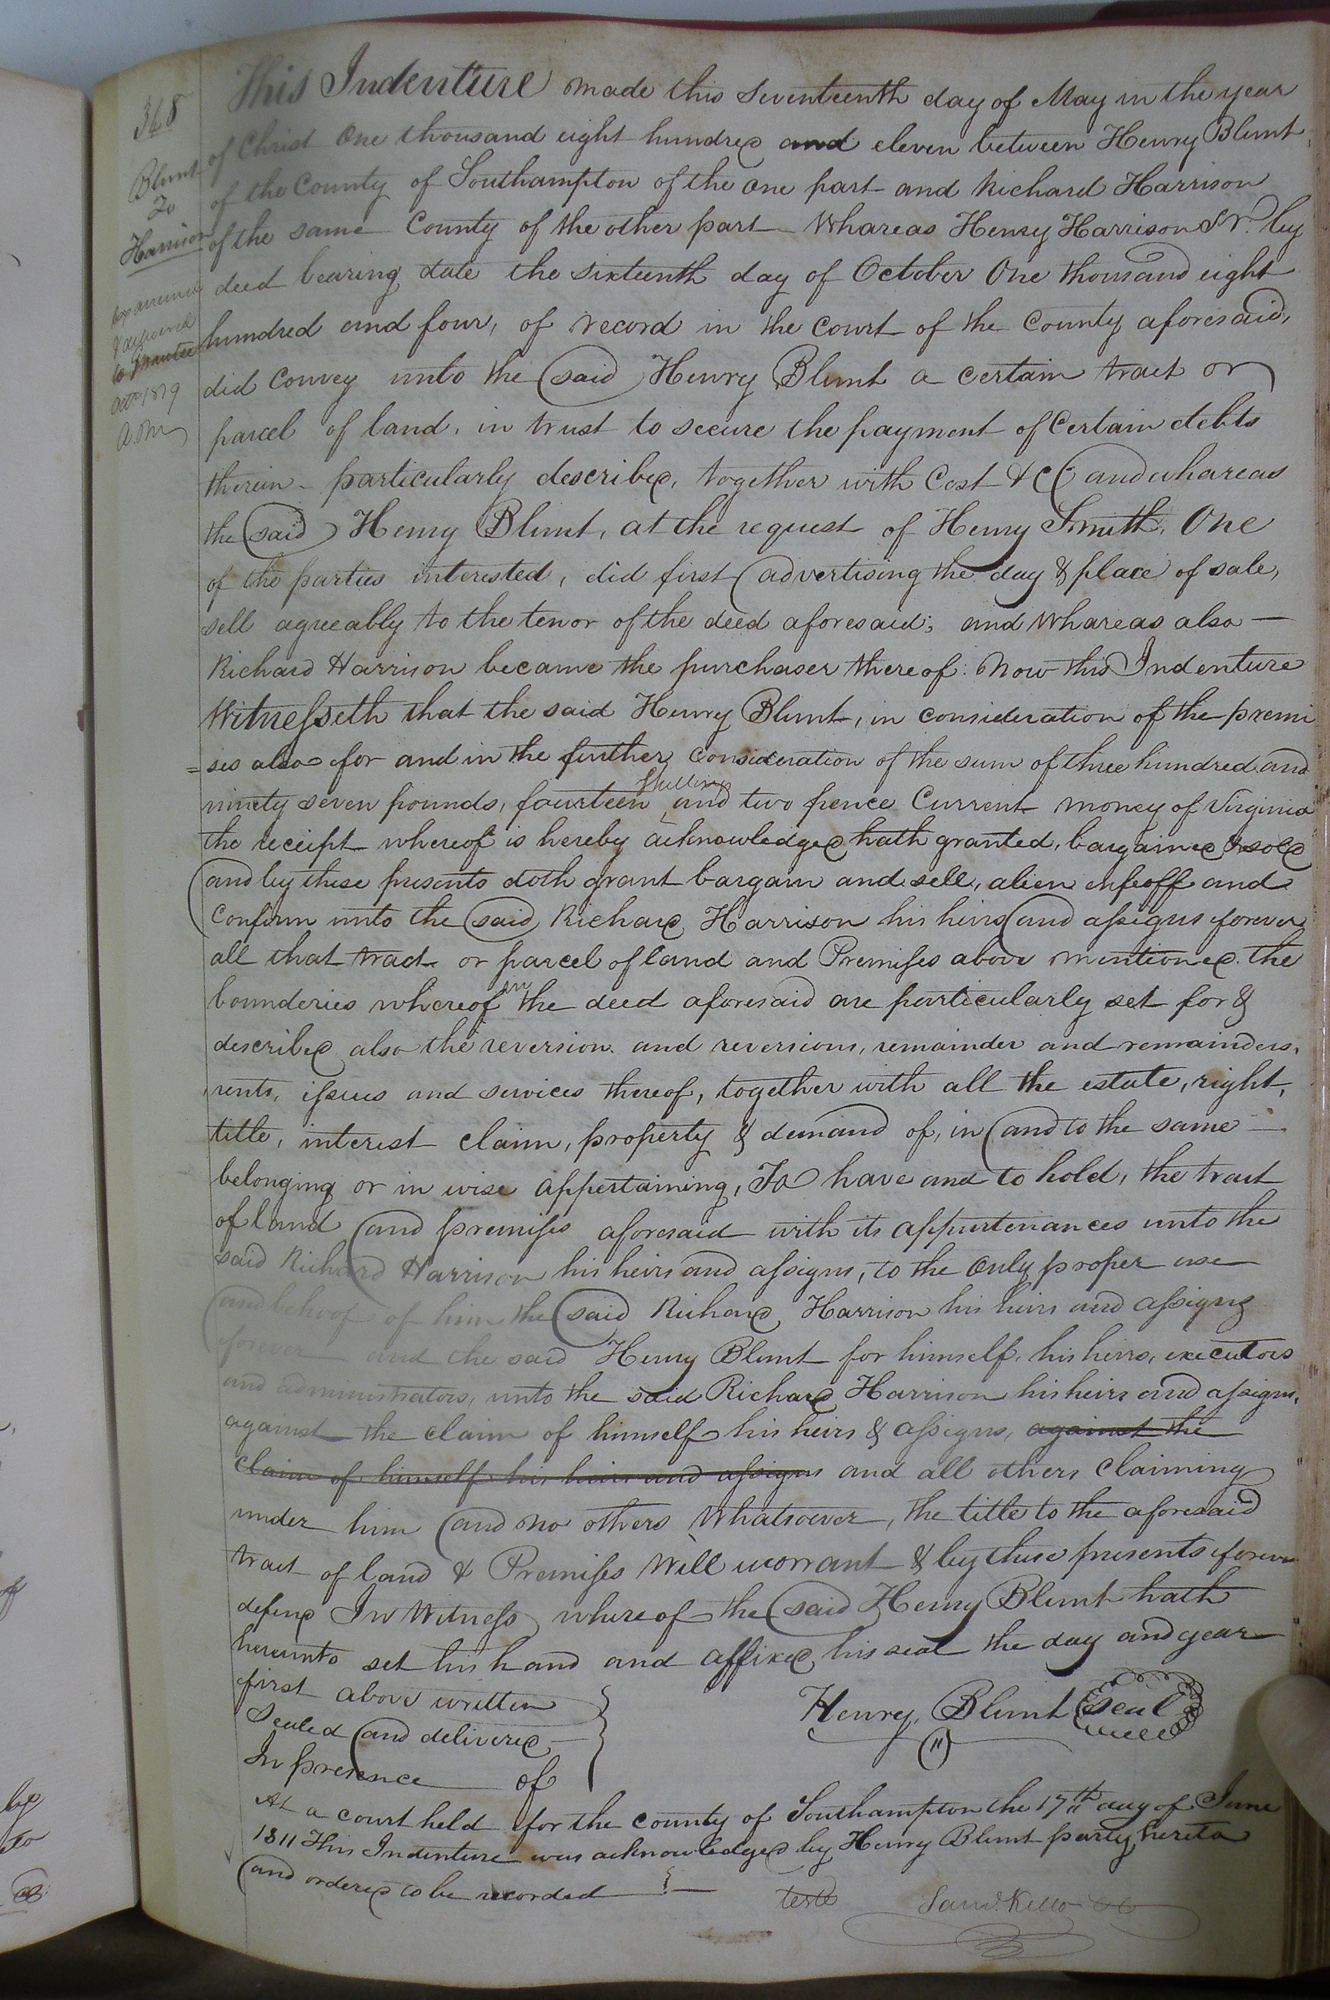 348
Blunt
To
Harrison
examined
& delivered
to Grantee
Octr 1819
This Indenture made this Seventeenth day of May in the year
of Christ One thousand eight hundred and eleven between Henry Blunt
of the County of Southampton of the one part and Richard Harrison
of the same County of the other part Whareas Henry Harrison Sr. by
deed bearing date the sixteenth day of October One thousand eight
hundred and four, of record in the court of the County aforesaid,
did convey unto the said Henry Blunt a certain tract or
parcel of land, in trust to secure the payment of Certain debts
therein particularly described, together with Cost &c and whareas
the said Henry Blunt, at the request of Henry Smith, One
of the parties interested, did first advertising the day & place of sale,
sell agreeably to the tenor of the deed aforesaid; and Whareas also —
Richard Harrison became the purchaser thereof: Now this Indenture
Witnesseth that the said Henry Blunt, in consideration of the premi
=ses also for and in the further consideration of the sum of three hundred and
ninety seven pounds, fourteen Shillings and two pence Current money of Virginia
the receipt whereof is hereby acknowledged hath granted, bargained & sold
and by these presents doth grant bargain and sell, alien enfeoff and
Confirm unto the said Richard Harrison his heirs and assigns forever
all that tract or parcel of land and Premisses above mentioned. the
bounderies whereof in the deed aforesaid are particularly set for &
described also the reversion and reversions, remainder and remainders,
rents, issues and services thereof, together with all the estate, right,
title, interest claim, property & demand of, in and to the same —
belonging or in wise appertaining, To have and to hold, the tract
of land and premisses aforesaid with its appurtenances unto the
said Richard Harrison his heirs and assigns, to the Only proper use
and behoof of him the said Richard Harrison his heirs and assigns
forever and the said Henry Blunt for himself, his heirs, executors
and administrators, unto the said Richard Harrison his heirs and assigns,
against the claim of himself his heirs & assigns, against the
claim of himself his heirs and assigns and all others claiming
under him and no others Whatsoever, the title to the aforesaid
tract of land & Premisses Will warrant & by these presents forever
defend In Witness whereof the said Henry Blunt hath
hereunto set his hand and affixed his seal the day and year
first above written
Sealed and delivered
In presence of
Henry Blunt Seal
At a court held for the county of Southampton the 17th day of June
1811 This Indenture was acknowledged by Henry Blunt party hereto
and ordered to be recorded
teste Saml. Kello CC